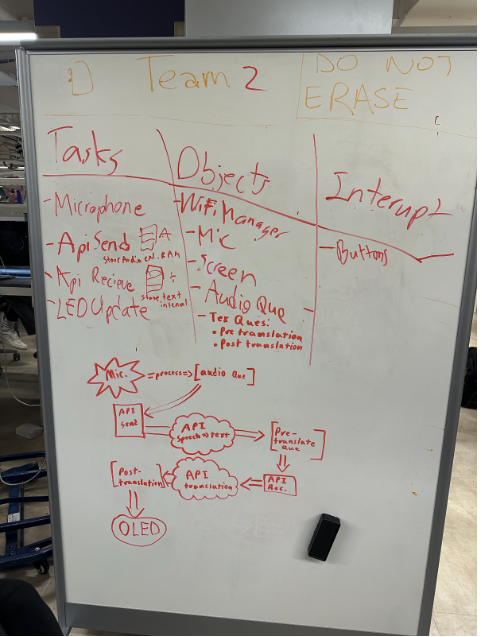 Team 2
DO NOT
ERASE
Tasks
- Microphone
- Api Send
store Audio in RAM
- Api Recieve
store text
internal
- LED Update
Objects
- WiFi Manager
- Mic
- Screen
- Audio Que
- Tex Ques:
• Pre translation
• Post translation
Interupt
- Buttons
Mic. =process=> [audio Que]
API
Send
API
Speech=>text
Pre-
translate
Que
API
Rec.
API
translation
[Post-
translation]
OLED